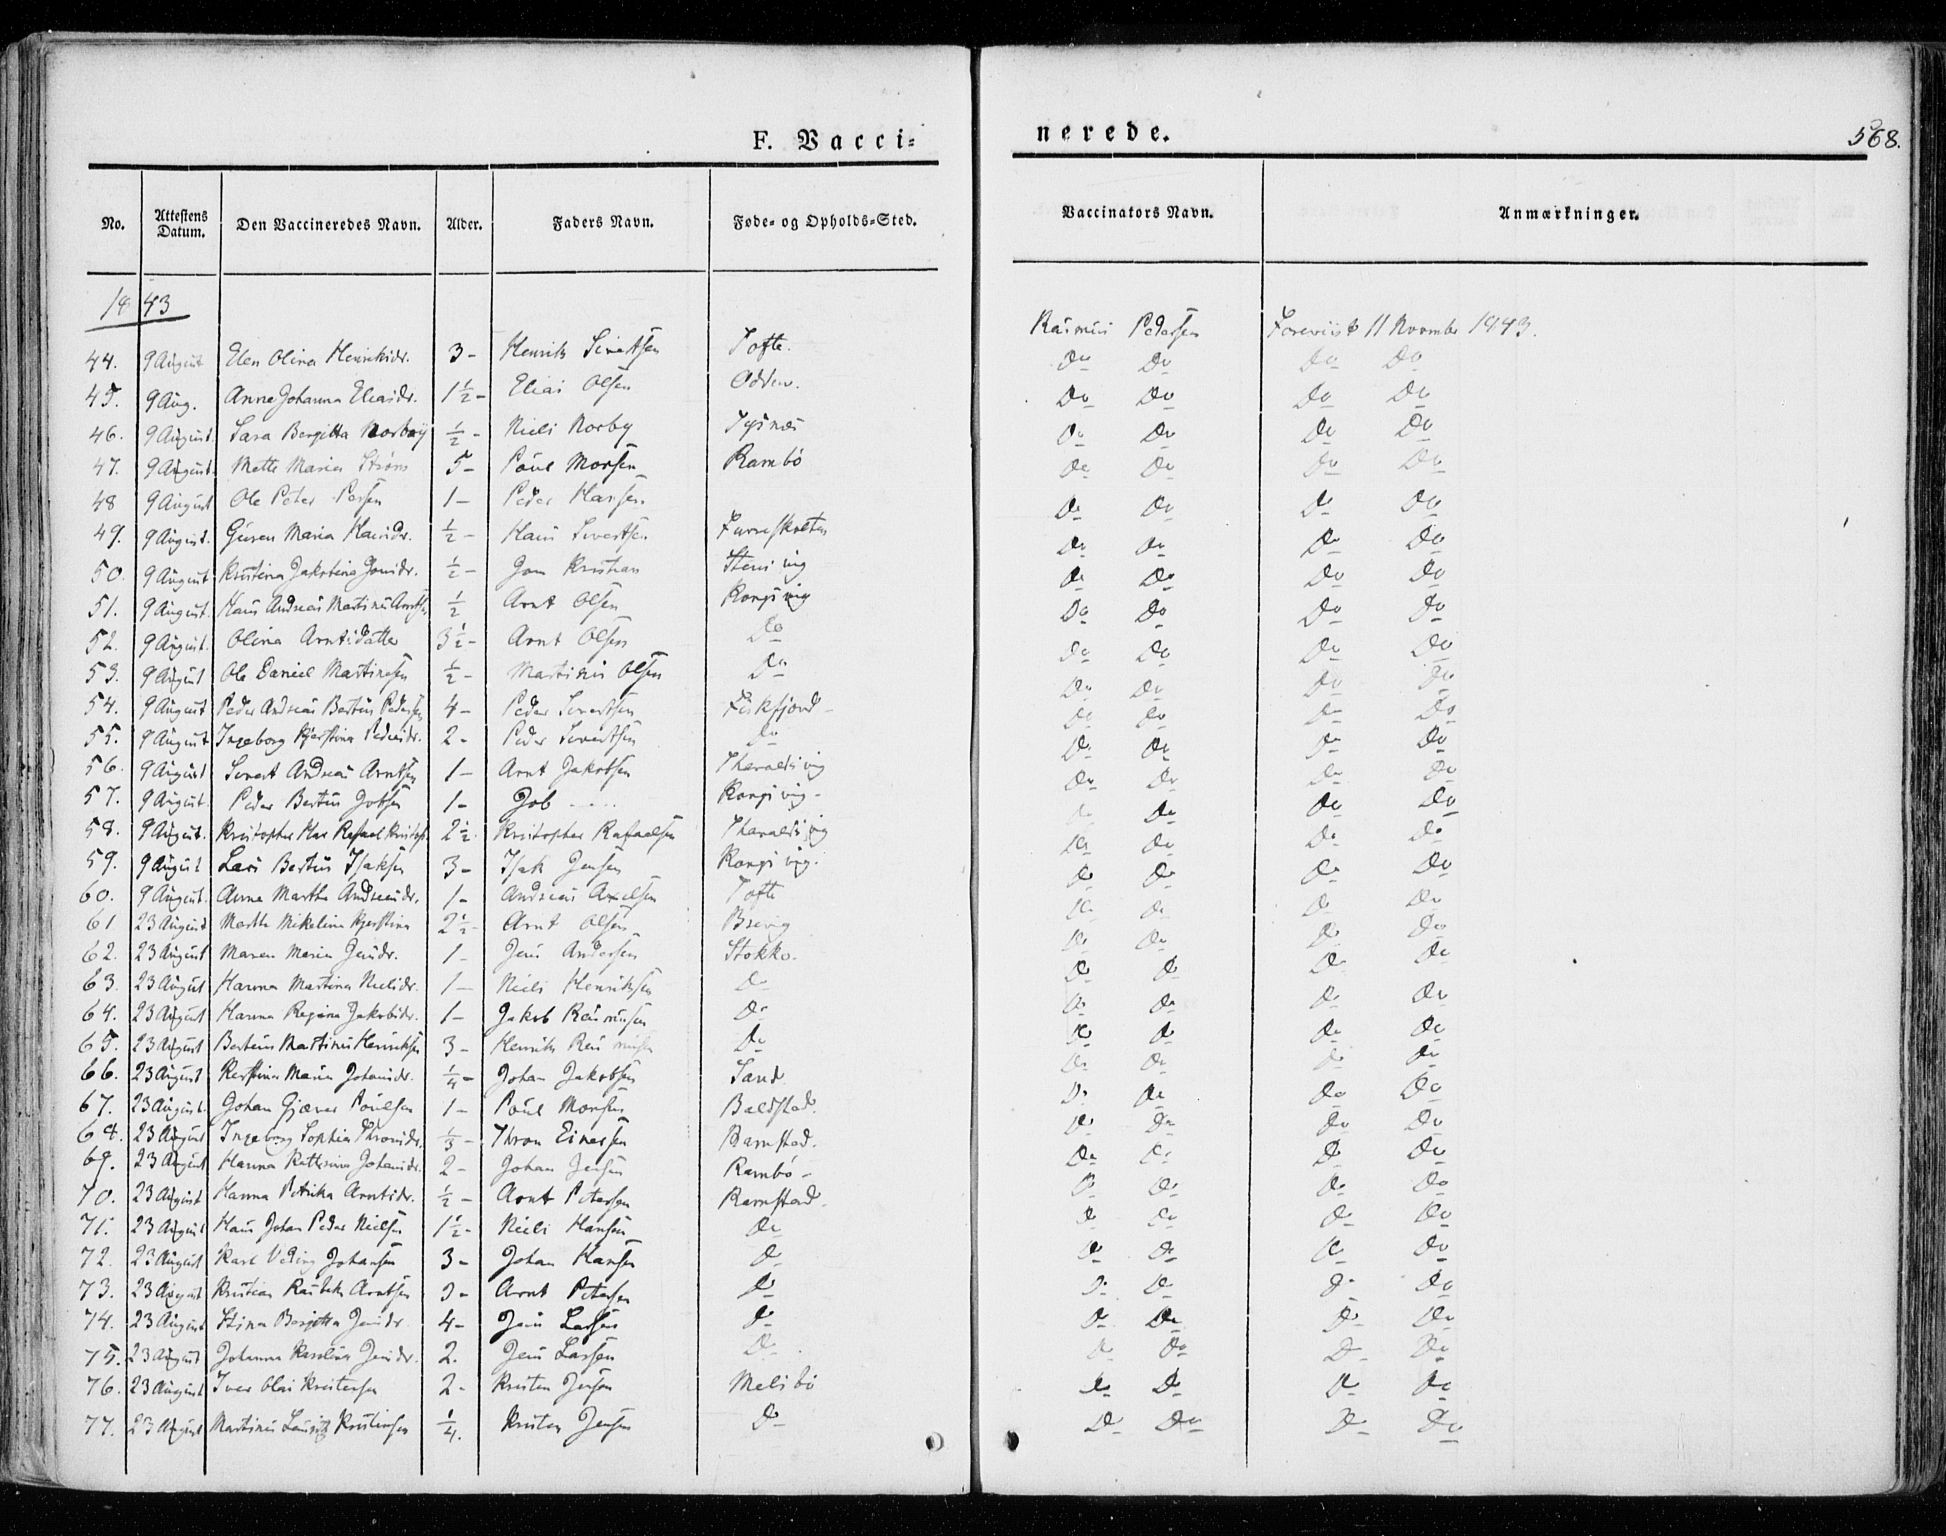 F. Vacci=
nerede.
568.
No. Attestens Datum. Den Vaccineredes Navn. Alder. Faders Navn. Føde= og Opholds=Sted. Vaccinators Navn. Anmærkninger.
1843
44. 9 August Elen Olina Henriksdr. 3 - Henrik Sivertsen Tofte. Rasmus Pedersen Foreviist 11 November 1843.
45. 9 Aug. Anne Johanna Eliasdr. 1½ - Elias Olsen Odden. Do Do Do Do
46. 9 August. Sara Bergitta Norbÿ ½ - Niels Norby Tysnæs Do Do Do Do
47. 9 August. Mette Maria Strøm 5 - Poul Monsen Rambö Do Do Do Do
48 9 August Ole Peter 1 - Peder Hansen Do Do Do Do
49. 9 August. Guren Maria Hansdr. ½ - Hans Sivertsen Do Do Do Do
50. 9 August Kristina Jakobina Jonsdr. ½ - Jon Kristian Do Do Do Do
51. 9 August. Hans Andreas Martinus Arntsen ½ Arnt Olsen Kongsvig Do Do Do Do
52. 9 August. Olina Arntsdatter 3½ - Arnt Olsen Do Do Do Do Do
53. 9 August Ole Daniel Martinesen ½ - Martinus Olsen Do Do Do Do Do
54. 9 August Peder Andreas Bertus Pedersen 4 - Peder Sivertsen Fiskfjord - Do Do Do Do
55. 9 August Ingeborg Kjerstina Pedersdr. 2 - Peder Sivertsen Do Do Do Do Do
56. 9 August Sivert Andreas Arntsen 1 - Arnt Jakobsen Tharaldsvig Do Do Do Do
57. 9 August. Peder Bertus Jobsen 1 - Job .... Kongsvig - Do Do Do Do
58. 9 August. Kristopher Rafael 2½ Kristopher Rafaelsen Tharaldsvig Do Do Do Do
59. 9 August Lars Bertus Isaksen 3 - Isak Jensen Kongsvig. Do Do Do Do
60. 9 August. Anne Martha Andreasdr. 1 - Andreas Axelsen Tofte Do Do Do Do
61 23 August Martha Mikelina Kjerstina 2½ - Arnt Olsen Do Do Do Do
62. 23 August Maren Maria Jensdr. 1 - Jens Andersen Stokkö. Do Do Do Do
63. 23 August Hanna Martina Nielsdr. 1 - Niels Henriksen Do Do Do Do Do
64. 23 August Hanna Regina Jakobsdr. 1 - Jakob Rasmusen Do Do Do Do Do
65. 23 August Bertus Martinus Henriksen 3 - Henrik Rasmusen Do Do Do Do Do
66. 23 August Kerstina Maria Johansdr. ¼ - Johan Jakobsen Sand Do Do Do Do
67. 23 August. Johan Gjæver Poulsen 1 - Poul Monsen Baldstad. Do Do Do Do
68. 23 August Ingeborg Sophia Thronsdr. ⅓ - Thron Einersen Ramstad. Do Do Do Do
69. 23 August Hanna Katterina Johansdr. 2 - Johan Jensen Rambö - Do Do Do Do
70. 23 August Hanna Petrika Arntsdr. ½ - Arnt Petersen Ramstad. Do Do Do Do
71. 23 August Hans Johan Peder Nielsen 1½ - Niels Hansen Do Do Do Do Do
72. 23 August Karl Johansen 3 - Johan Hansen Do Do Do Do Do
73. 23 August Kristian Arntsen 3 - Arnt Petersen Do Do Do Do Do
74. 23 August Stina Bergitta Jensdr. 4 - Jens Larsen Do Do Do Do Do
75. 23 August Johanna Karolina Jensdr. 2. Jens Larsen Do. Do Do Do Do
76. 23 August Iver Olai Kristensen 2 - Kristen Jensen Melsbö Do Do Do Do
77. 23 August Martinus Lauritz Kristensen ¼. Kristen Jensen Do Do Do Do Do